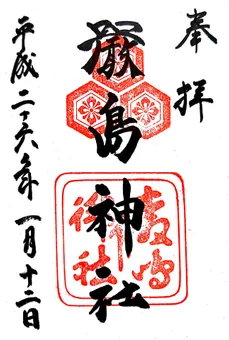 奉拝
厳島神社
嚴島神社
平成二十六年一月十二日